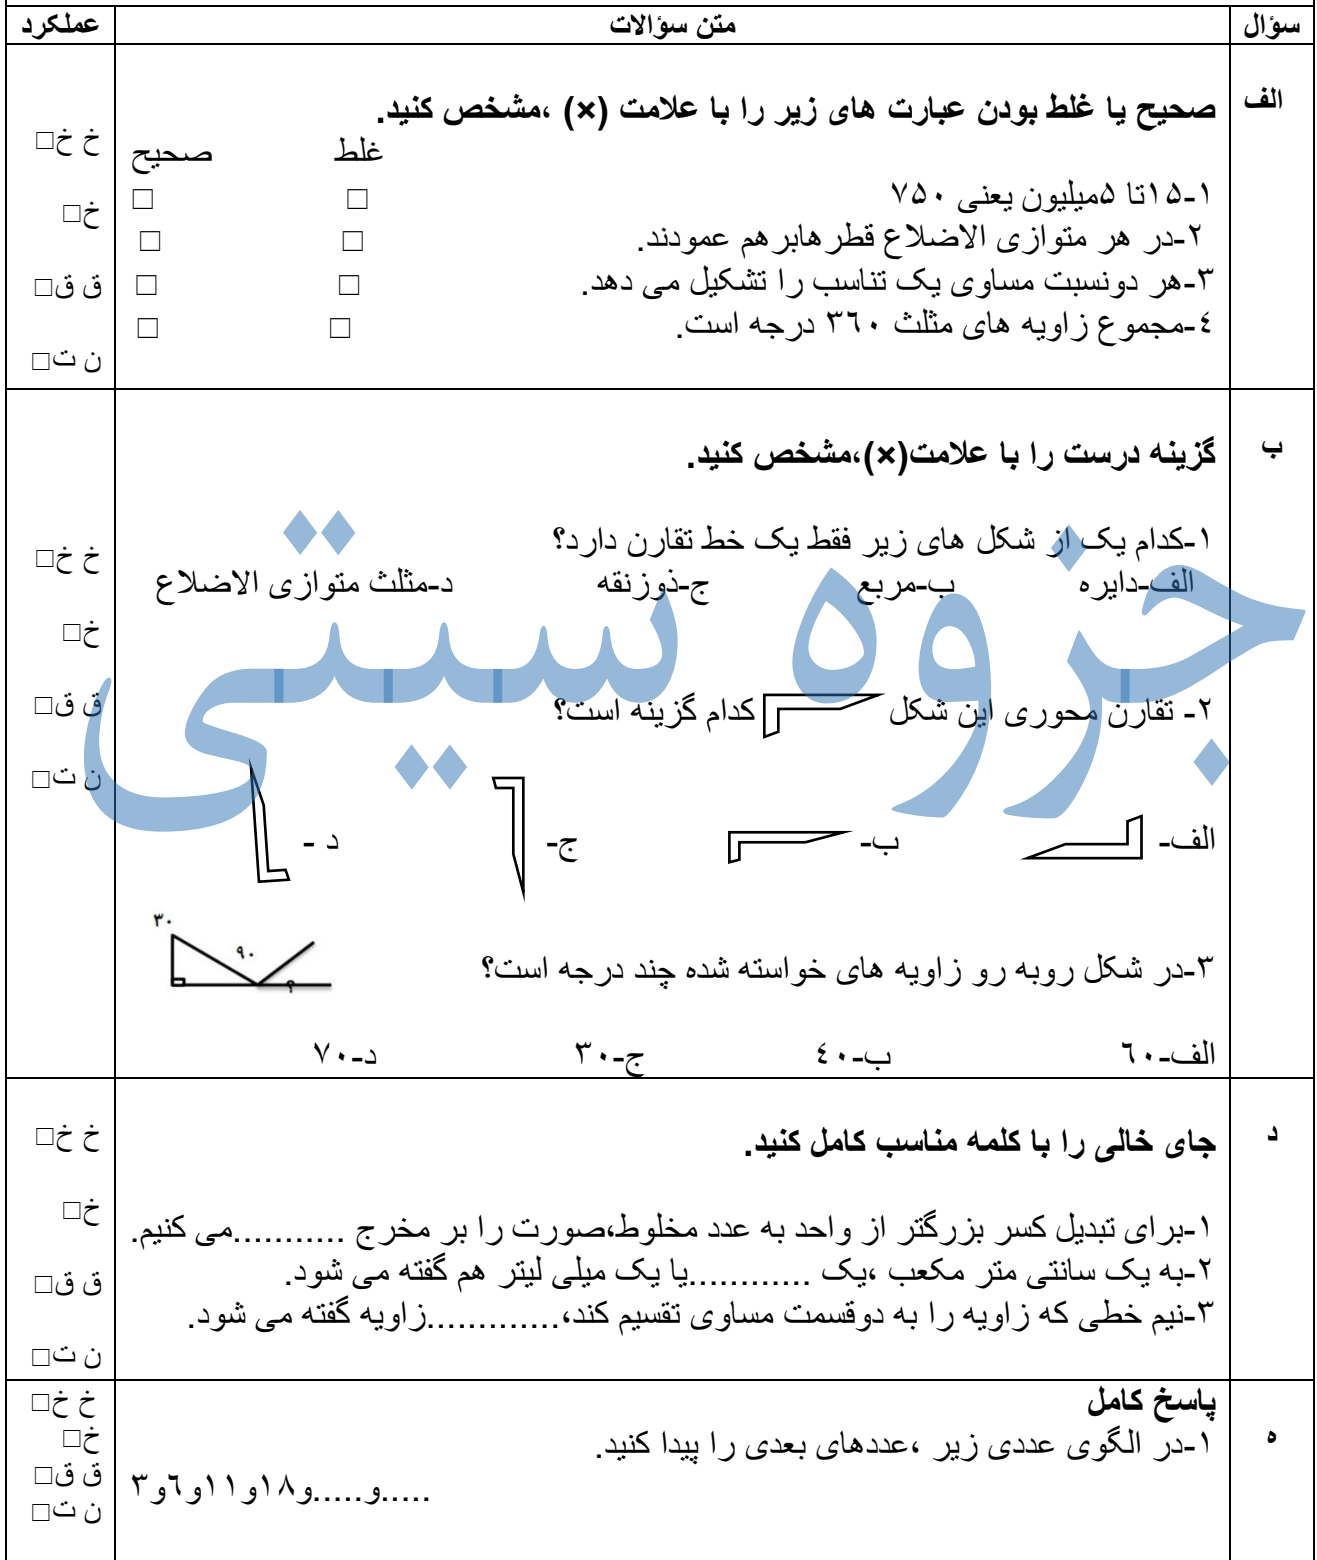 سؤال متن سؤالات عملکرد
الف
صحیح یا غلط بودن عبارت های زیر را با علامت (×) ،مشخص کنید.
غلط صحیح
۱-۱۵تا ۵میلیون یعنی ۷۵۰ □ □
۲-در هر متوازی الاضلاع قطرهابرهم عمودند. □ □
۳-هر دونسبت مساوی یک تناسب را تشکیل می دهد. □ □
٤-مجموع زاویه های مثلث ۳٦۰ درجه است. □ □
خ خ□
خ□
ق ق□
ن ت□
ب
گزینه درست را با علامت(×)،مشخص کنید.
۱-کدام یک از شکل های زیر فقط یک خط تقارن دارد؟
الف-دایره ب-مربع ج-ذوزنقه د-مثلث متوازی الاضلاع
۲- تقارن محوری این شکل کدام گزینه است؟
الف- ب- ج- د -
۳-در شکل روبه رو زاویه های خواسته شده چند درجه است؟
۳۰
۹۰
؟
الف-٦۰ ب-٤۰ ج-۳۰ د-۷۰
خ خ□
خ□
ق ق□
ن ت□
جزوه سیتی
د
جای خالی را با کلمه مناسب کامل کنید.
۱-برای تبدیل کسر بزرگتر از واحد به عدد مخلوط،صورت را بر مخرج ...........می کنیم.
۲-به یک سانتی متر مکعب ،یک ............یا یک میلی لیتر هم گفته می شود.
۳-نیم خطی که زاویه را به دوقسمت مساوی تقسیم کند،.............زاویه گفته می شود.
خ خ□
خ□
ق ق□
ن ت□
ه
پاسخ کامل
۱-در الگوی عددی زیر ،عددهای بعدی را پیدا کنید.
.....و.....و۱۸و۱۱و٦و۳
خ خ□
خ□
ق ق□
ن ت□